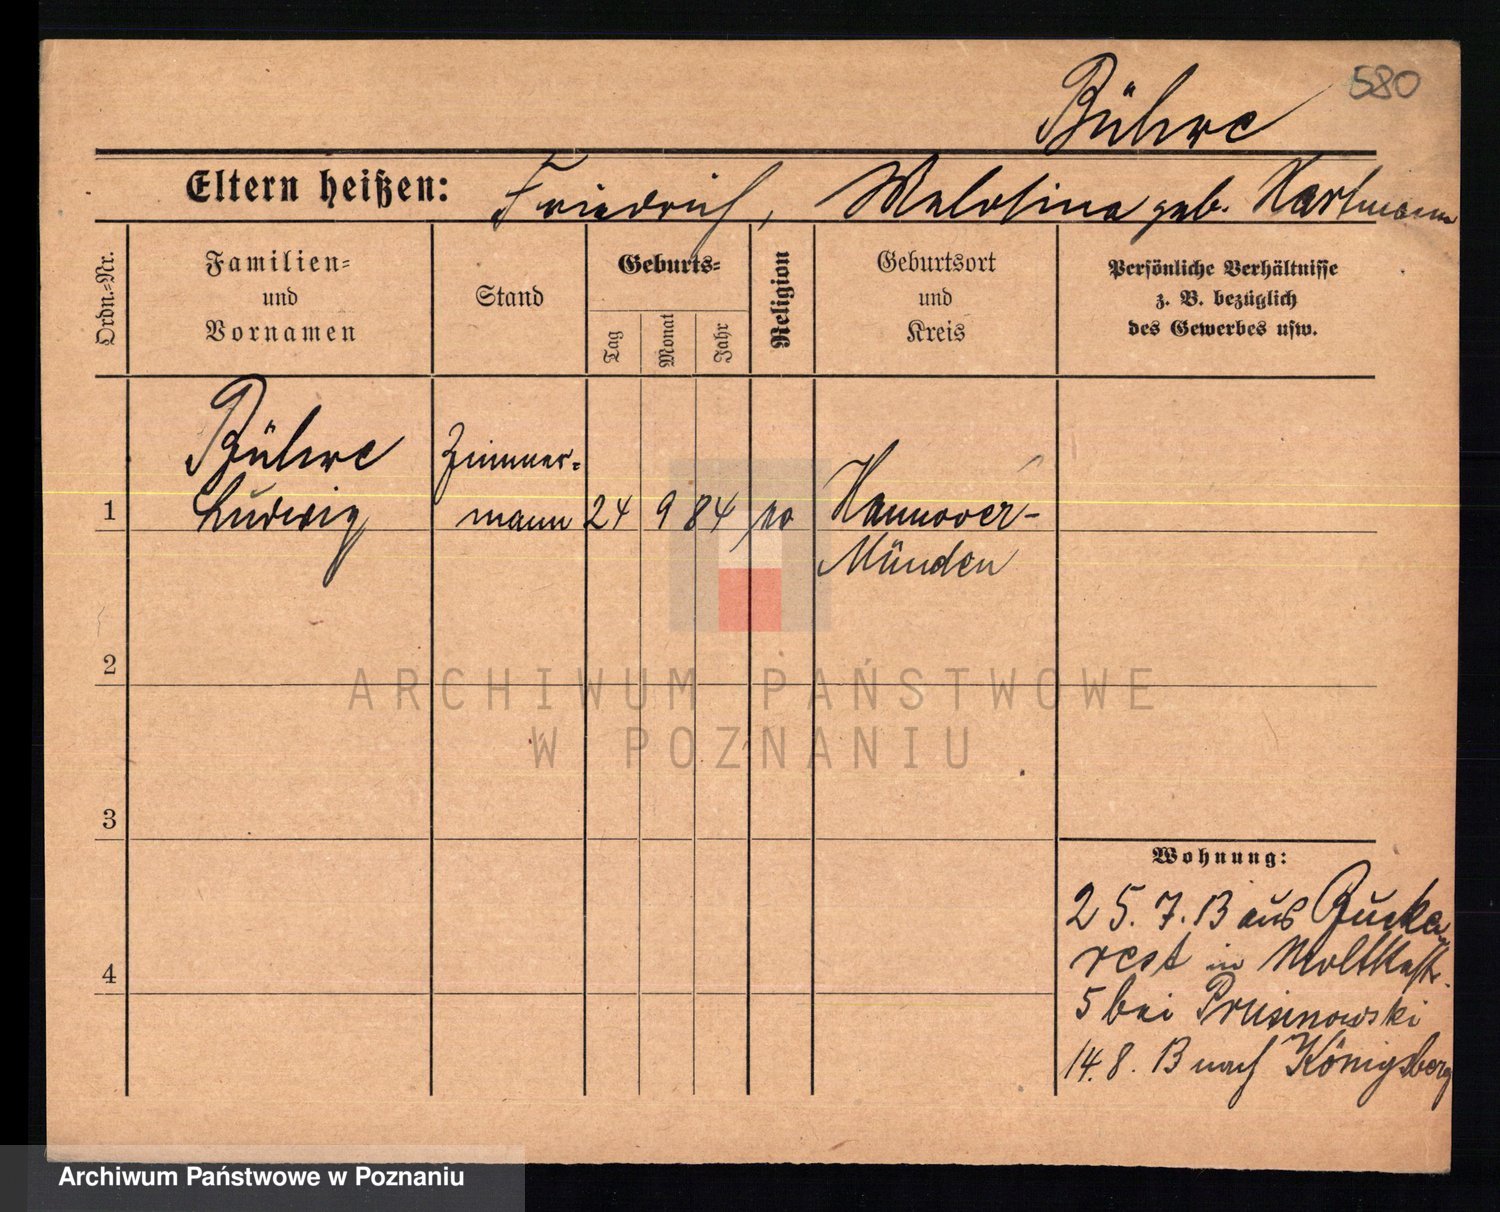 580
Bühre
Eltern heißen: Friedrich, Melosina geb. Hartmann
Ordn.-Nr.
Familien- und Vornamen
Stand
Geburts-
Tag
Monat
Jahr
Religion
Geburtsort und Kreis
Persönliche Verhältnisse
z. B. bezüglich
des Gewerbes usw.
1
Bühre
Ludwig
Zimmer-
mann
24 9 84
Hannover-
Münden
2
3
4
Wohnung:
25.7.13 aus Buka
rest in Moltkestr.
5 bei Prusinowski
14.8.13 nach Königsberg
ARCHIWUM PAŃSTWOWE
W POZNANIU
Archiwum Państwowe w Poznaniu